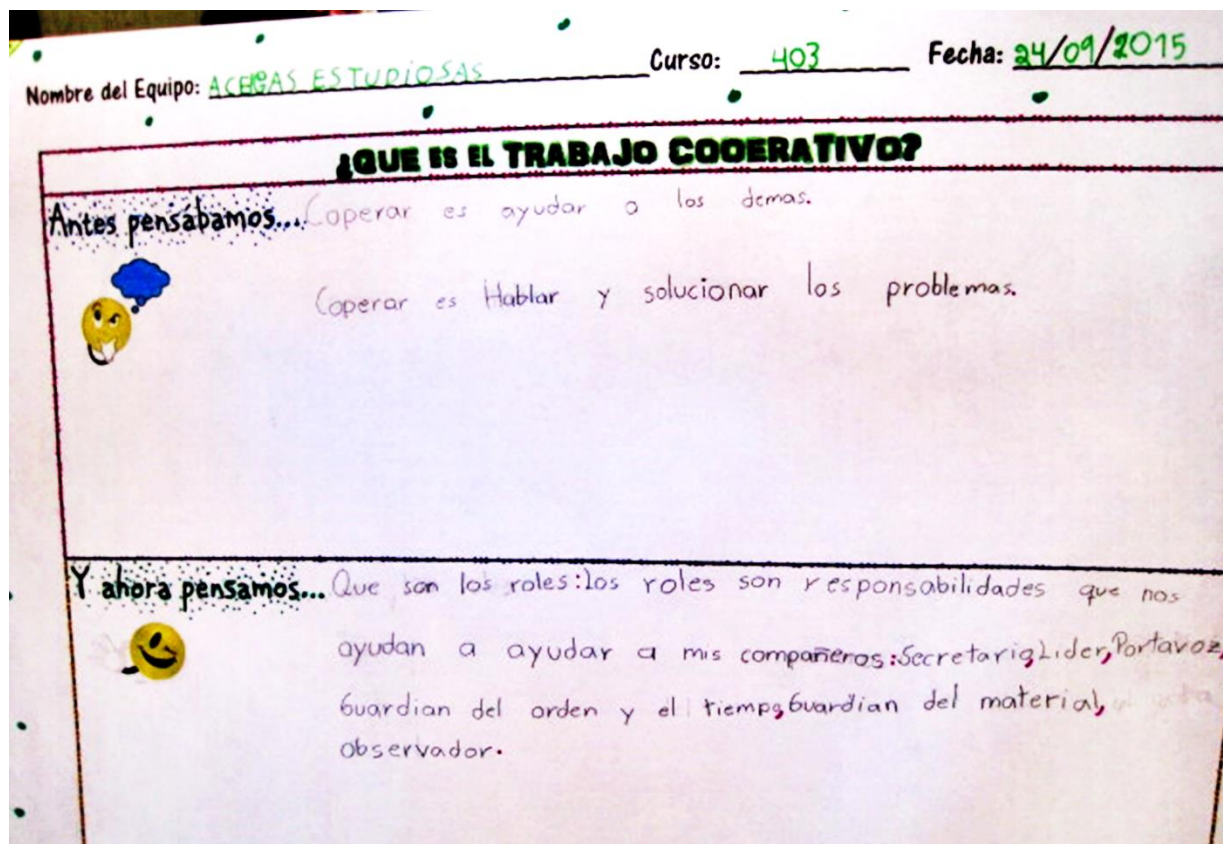 Nombre del Equipo: ESTUDIOSAS Curso: 403 Fecha: 24/09/2015
¿QUE ES EL TRABAJO COOERATIVO?
Antes pensábamos... Coperar es ayudar a los demas.
Coperar es Hablar y solucionar los problemas.
Y ahora pensamos... Que son los roles:los roles son responsabilidades que nos
ayudan a ayudar a mis compañeros:Secretaria,Lider,Portavoz,
Guardian del orden y el tiempo,Guardian del material,
observador.